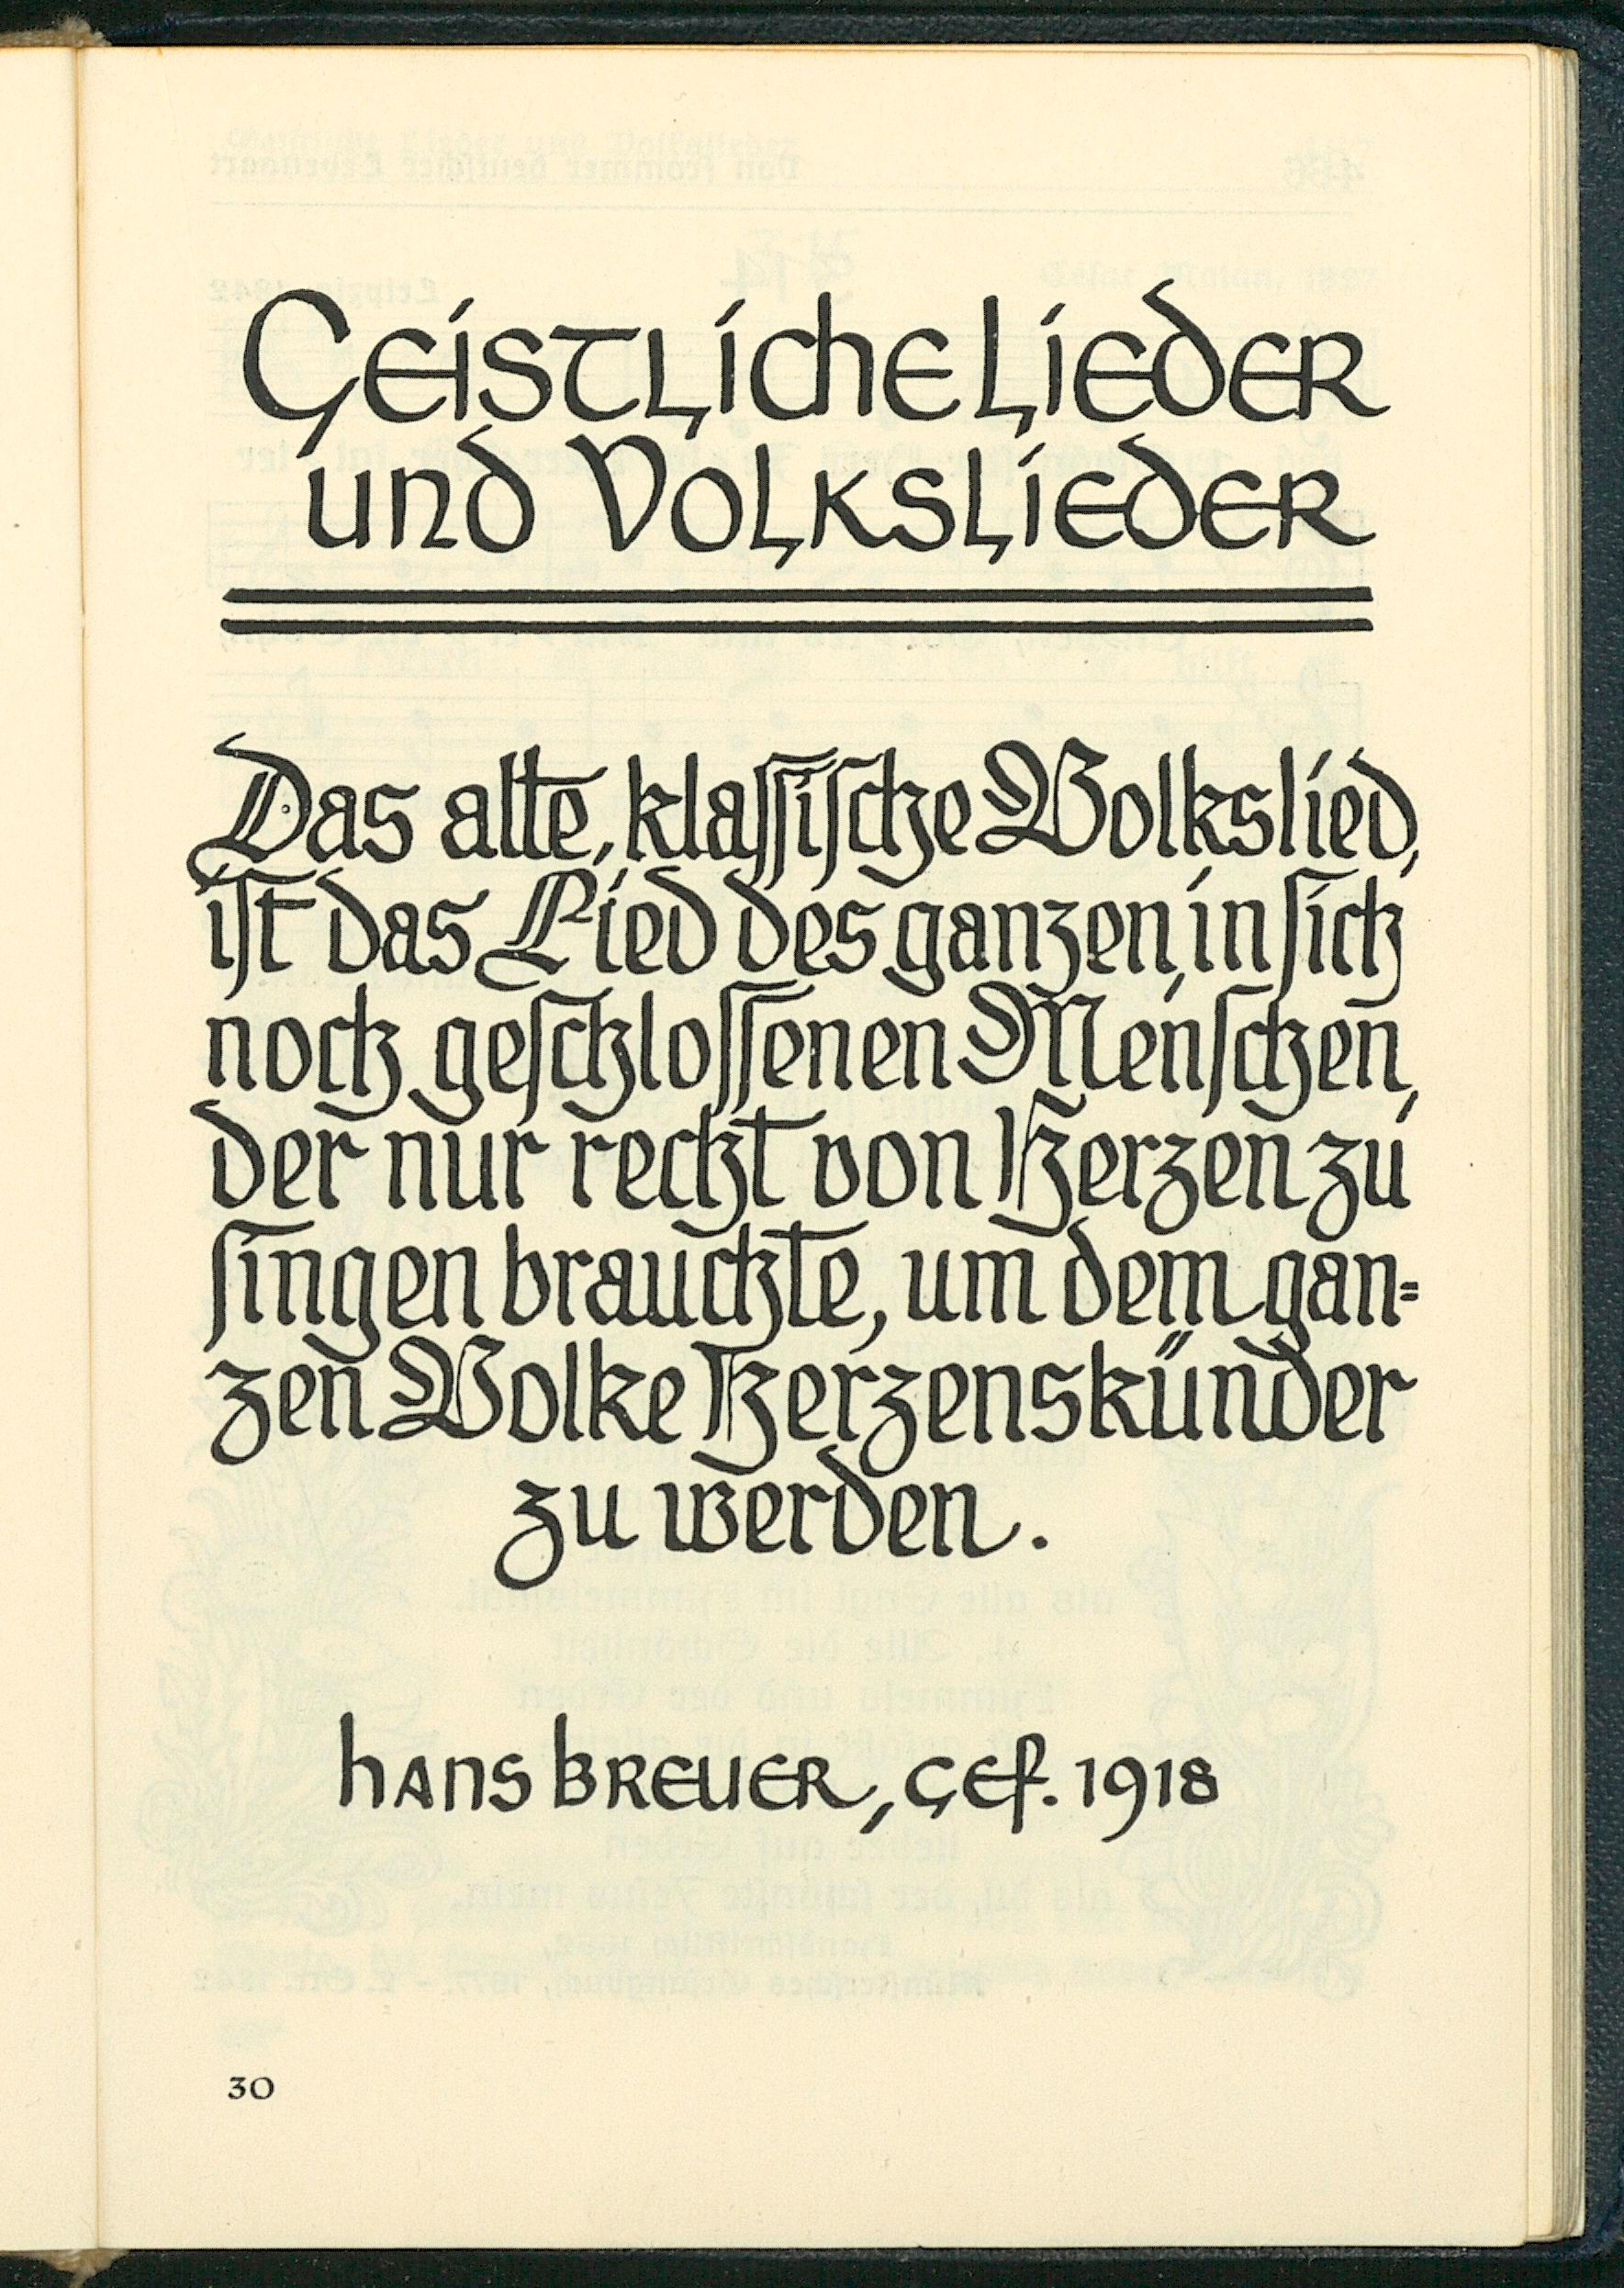 Geistliche Lieder
und Volkslieder
Das alte, klassische Volkslied,
ist das Lied des ganzen, in sich
noch geschlossenen Menschen,
der nur recht von Herzen zu
singen brauchte, um dem gan=
zen Volke Herzenskünder
zu werden.
Hans Breuer, gef. 1918
30